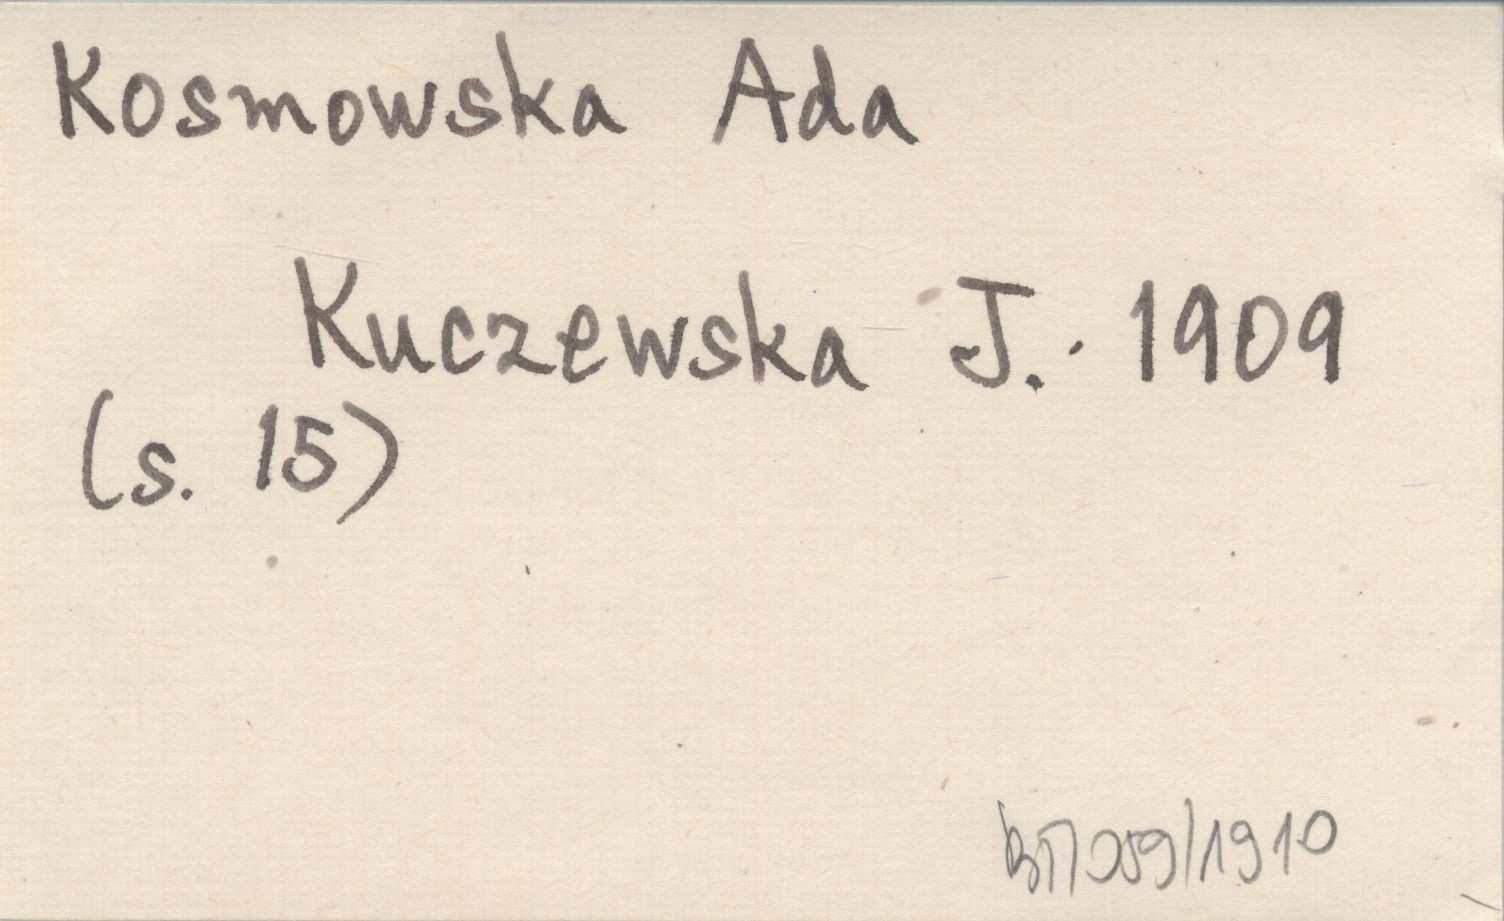 Kosmowska Ada
Kuczewska J. 1909
(s. 15)
/1910